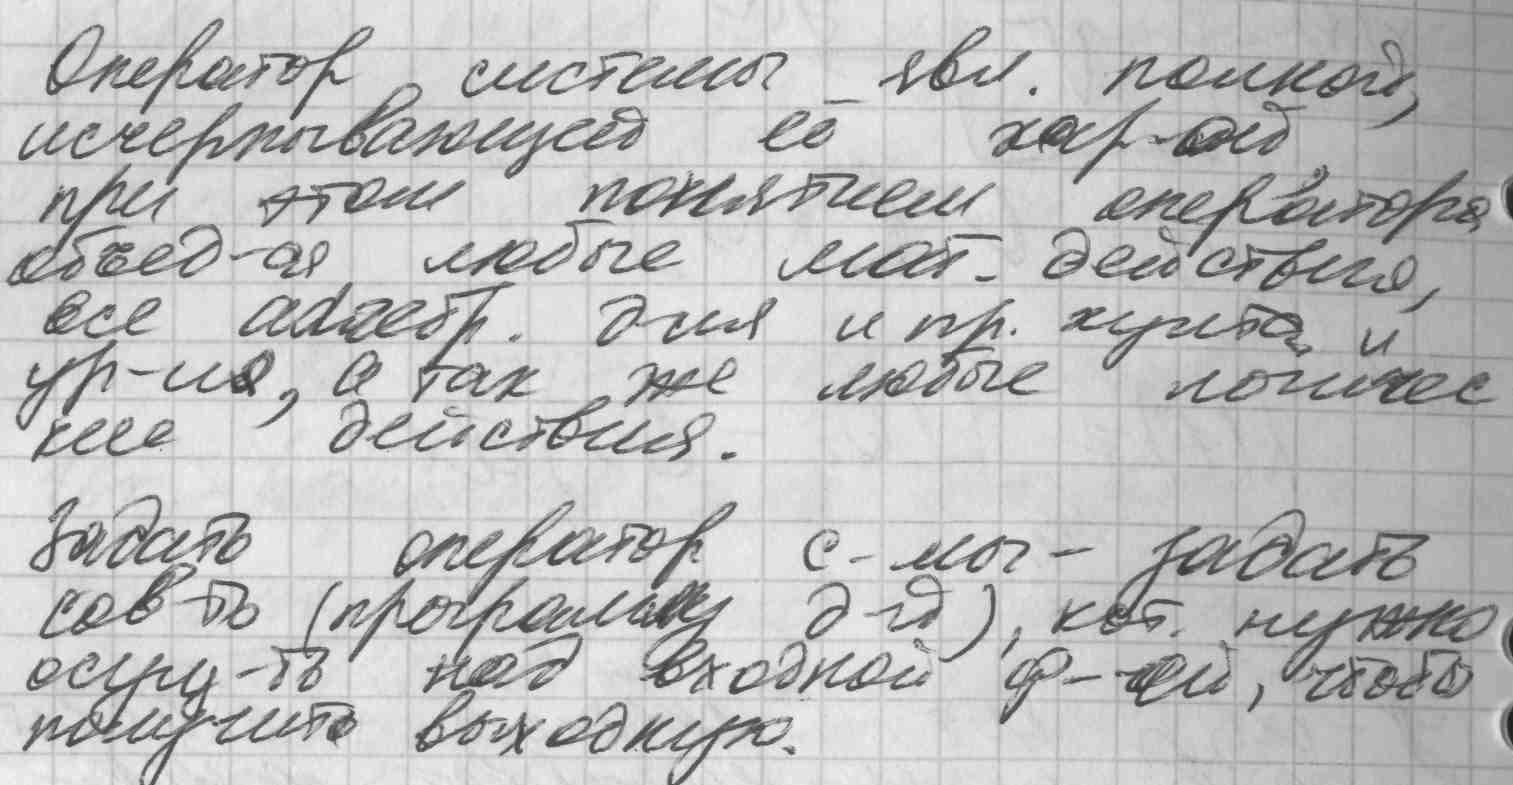 Оператор системы явл. полной,
исчерпывающей её хар-ой,
при этом понятием оператора
объед-ся любые мат. действия,
все алгебр. д-ия и пр.
ур-ия, а так же любые логичес
кие действия.
Задать оператор с-мы - задать
сов-ть (программу д-й), кот. нужно
осущ-ть над входной ф-ей, чтобы
получить выходную.